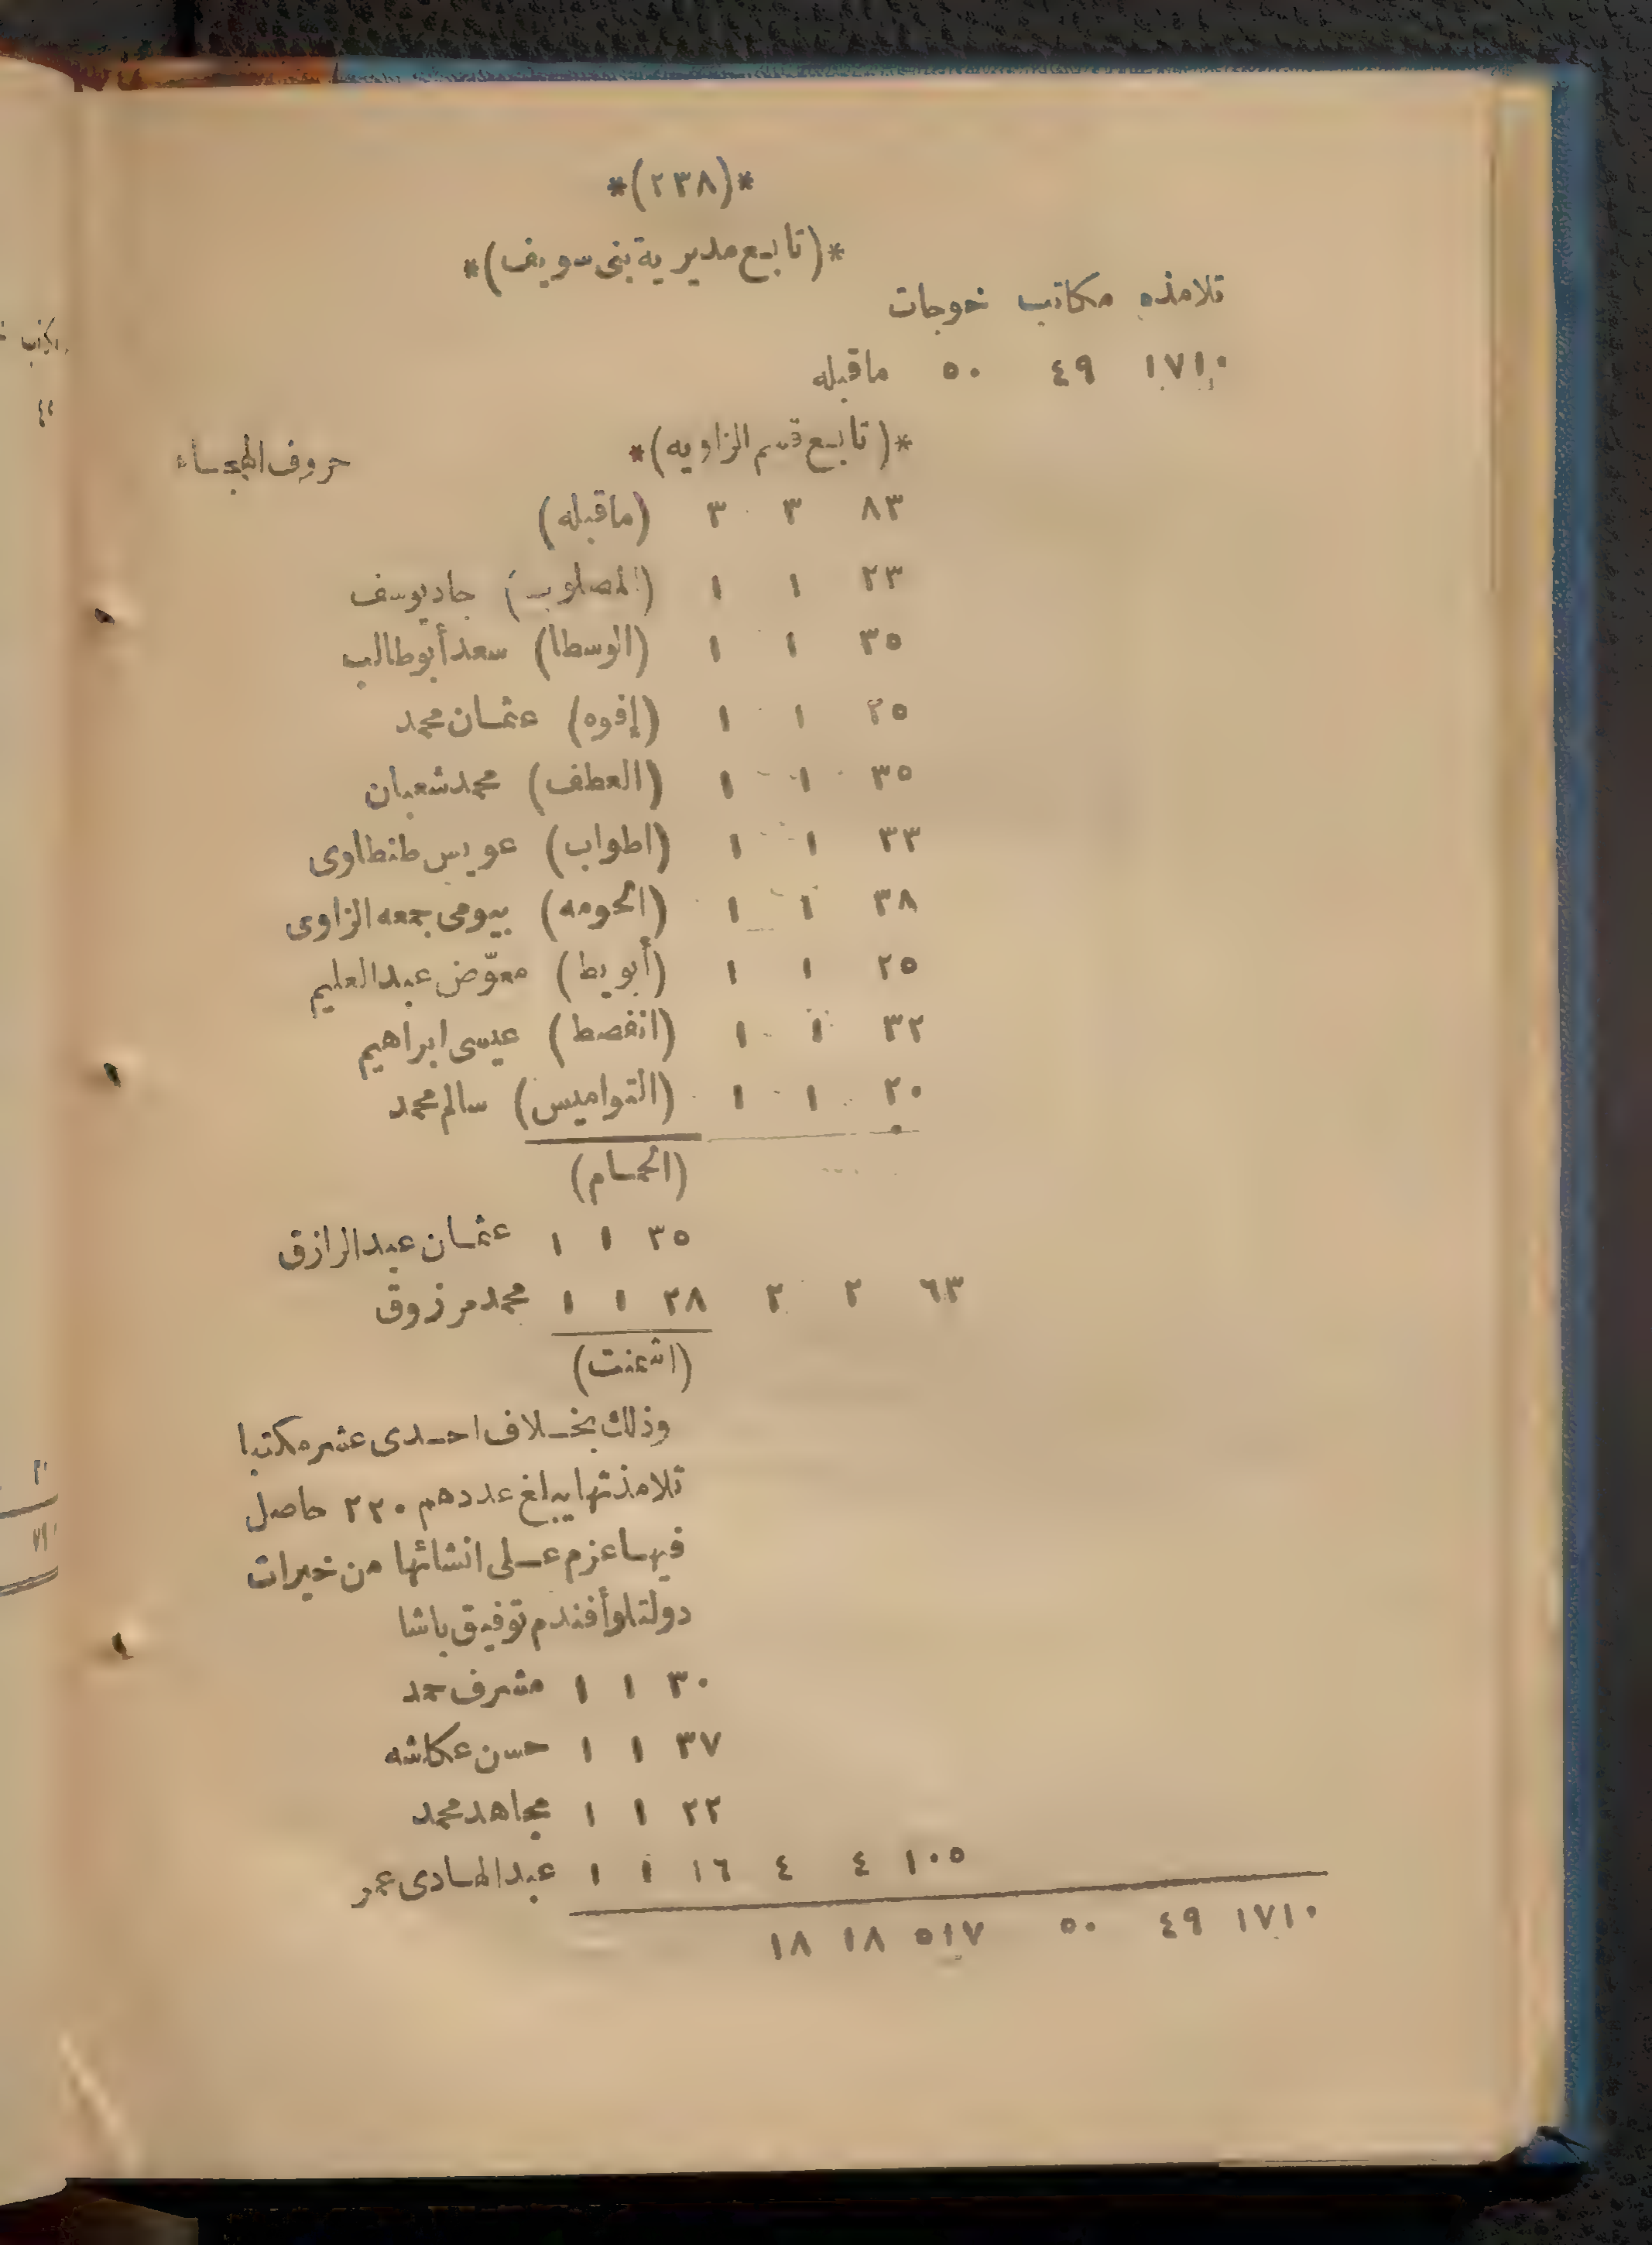 *(٢٣٨)*
*(تابع مديرية بنى سويف)*
تلامذه مكاتب خوجات
١٧١٠ ٤٩ ٥٠ ماقبله
*(تابع قسم الزاويه)* حروف الهجاء
٨٣ ٣ ٣ (ماقبله)
٢٣ ١ ١ (المصلوب) جاد يوسف
٣٥ ١ ١ (الوسطا) سعد أبو طالب
٢٥ ١ ١ (إفوه) عثمان محمد
٣٥ ١ ١ (العطف) محمد شعبان
٣٣ ١ ١ (اطواب) عويس طنطاوى
٣٨ ١ ١ (الحومه) بيومى جمعه الزاوى
٢٥ ١ ١ (أبويط) معوّض عبد العليم
٣٢ ١ ١ (انفصط) عيسى ابراهيم
٢٠ ١ ١ (التواميس) سالم محمد
(الحمام)
٣٥ ١ ١ عثمان عبد الرازق
٦٣ ٢ ٢ ٢٨ ١ ١ محمد مرزوق
(اشمنت)
وذلك بخلاف احدى عشر مكتبا
تلامذتها يبلغ عددهم ٢٢٠ حاصل
فيها عزم على انشائها من خيرات
دولتلو أفندم توفيق باشا
٣٠ ١ ١ مشرف حمد
٣٧ ١ ١ حسن عكاشه
٢٢ ١ ١ مجاهد محمد
١٠٥ ٤ ٤ ١٦ ١ ١ عبد الهادى عمر
١٧١٠ ٤٩ ٥٠ ٥١٧ ١٨ ١٨